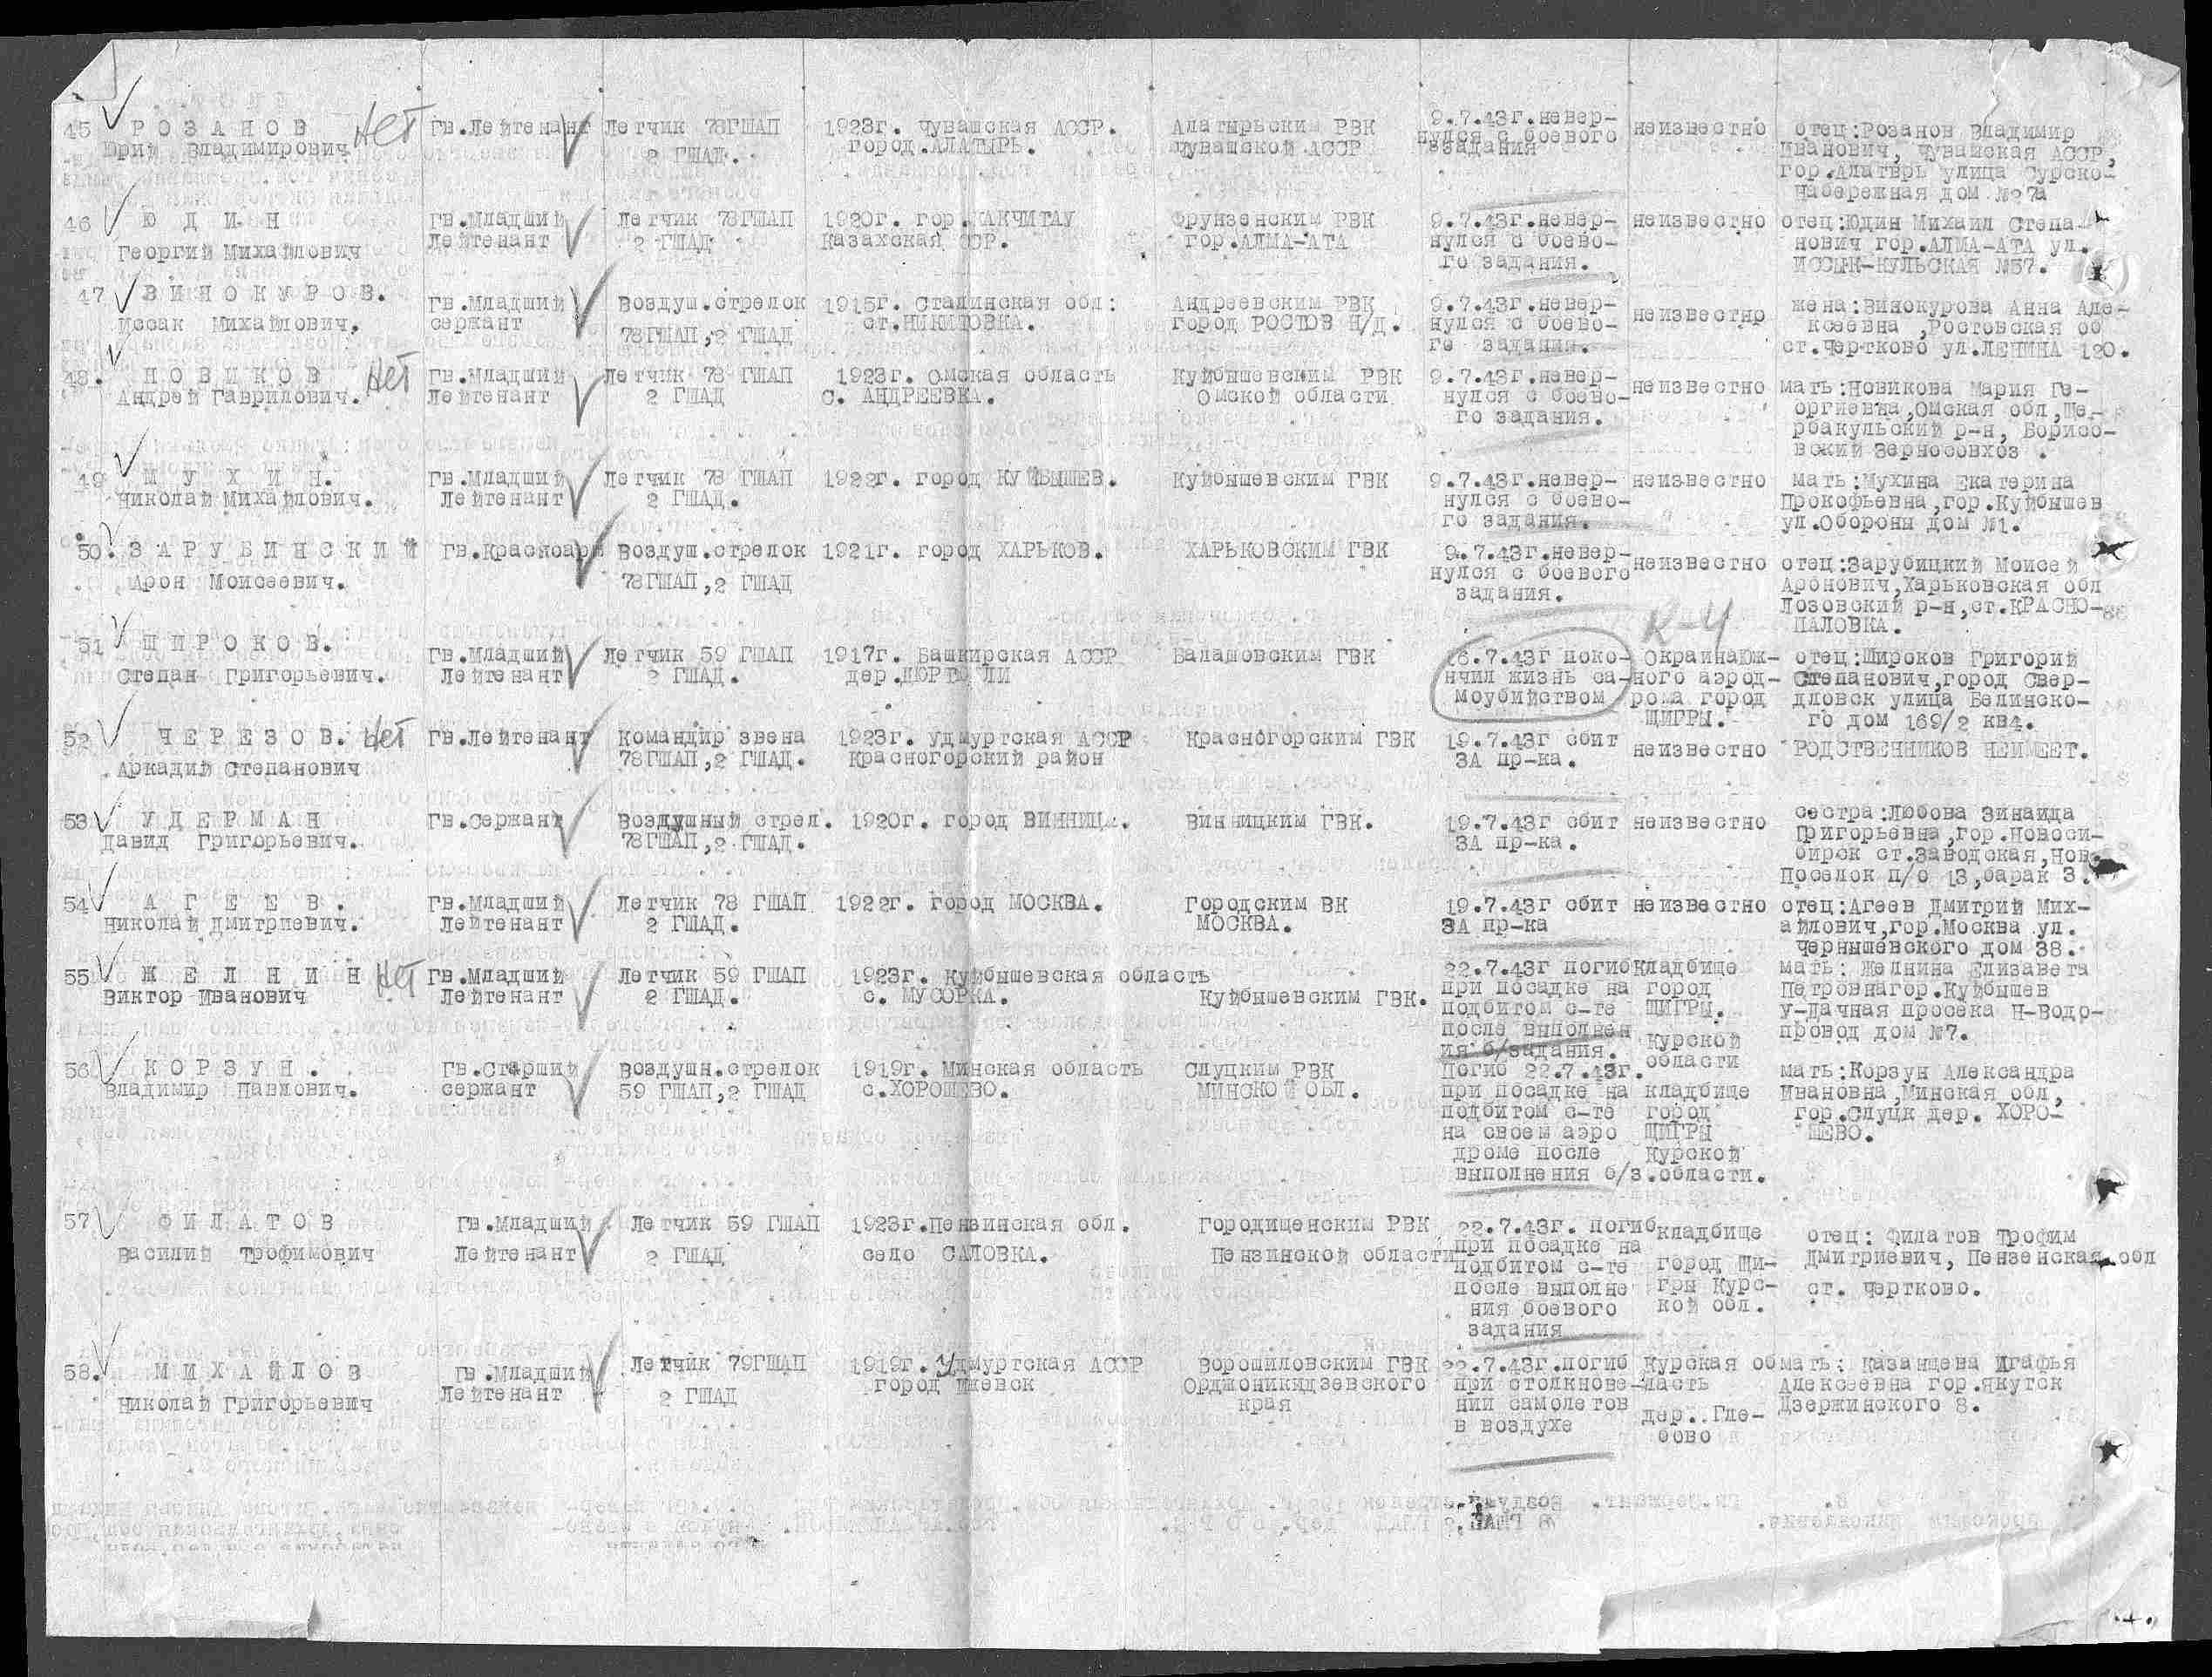 45 РОЗАНОВ Нет Гв.Лейтенант Летчик 78ГШАП 1923г. Чувашская АССР. Алатырьским РВК 9.7.43г.невер- неизвестно отец:Розанов Владимир
Юрий Владимирович 2 ГШАД. город.АЛАТЫРЬ. Чувашской АССР нулся с боевого Иванович, Чувашская АССР,
задания гор.Алатырь улица Сурско-
Набережная дом №27а
46 ЮДИН Гв.Младший Летчик 78ГШАП 1920г. гор. КАКЧИТАУ Фрунзенским РВК 9.7.43г.невер- неизвестно отец:Юдин Михаил Степа-
Георгий Михайлович Лейтенант 2 ГШАД Казахская ССР. гор.АЛМА-АТА нулся с боево- нович гор.АЛМА-АТА ул.
го задания. ИССЫК-КУЛЬСКАЯ №57.
47 ВИНОКУРОВ. Гв.Младший Воздуш.стрелок 1915г. Сталинская обл: Андреевским РВК 9.7.43г.невер- неизвестно жена:Винокурова Анна Але-
Иссак Михайлович. сержант 78ГШАП,2 ГШАД ст.НИКИТОВКА. город РОСТОВ Н/Д. нулся с боево- ксеевна ,Ростовская об
го задания. ст.Чертково ул.ЛЕНИНА 120.
48. НОВИКОВ Нет Гв.Младший Летчик 78 ГШАП 1923г. Омская область Куйбышевским РВК 9.7.43г.невер- неизвестно мать:Новикова Мария Ге-
Андрей Гаврилович. Лейтенант 2 ГШАД С. АНДРЕЕВКА. Омской области нулся с боево- оргиевна,Омская обл,Ше-
го задания. рбакульский р-н, Борисо-
вский Зерносовхоз .
49 МУХИН. Гв.Младший Летчик 78 ГШАП 1922г. город КУЙБЫШЕВ. Куйбышевским ГВК 9.7.43г.невер- неизвестно мать:Мухина Екатерина
Николай Михайлович. Лейтенант 2 ГШАД. нулся с боево- Прокофьевна,гор.Куйбышев
го задания. ул.Обороны дом №1.
50. ЗАРУБИНСКИЙ Гв.Красноарм Воздуш.стрелок 1921г. город ХАРЬКОВ. ХАРЬКОВСКИМ ГВК 9.7.43г.невер- неизвестно отец:Зарубицкий Моисей
Арон Моисеевич. 78ГШАП,2 ГШАД нулся с боевого Аронович,Харьковская обл
задания. Лозовский р-н,ст.КРАСНО-
ПАЛОВКА.
К-4
51 ШИРОКОВ. Гв.Младший Летчик 59 ГШАП 1917г. Башкирская АССР Балашовским ГВК 16.7.43г поко- Окраинаюж- отец:Широков Григорий
Степан Григорьевич. Лейтенант 2 ГШАД. дер.ДЮРТЮЛИ нчил жизнь са- ного аэрод- Степанович,город Свер-
моубийством рома город дловск улица Белинско-
ЩИГРЫ. го дом 169/2 кв4.
52 ЧЕРЕЗОВ. Нет Гв.Лейтенант Командир звена 1923г. Удмуртская АССР Красногорским ГВК 19.7.43г сбит неизвестно РОДСТВЕННИКОВ НЕИМЕЕТ.
Аркадий Степанович 78ГШАП,2 ГШАД. Красногорский район ЗА пр-ка.
53 УДЕРМАН Гв.Сержант Воздушный стрел. 1920г. город ВИННИЦА. Винницким ГВК. 19.7.43г сбит неизвестно сестра:Любова Зинаида
Давид Григорьевич. 78ГШАП,2 ГШАД. ЗА пр-ка. Григорьевна,гор.Новоси-
бирск ст.Заводская,Нов.
Поселок п/о 13,барак 3.
54 АГЕЕВ. Гв.Младший Летчик 78 ГШАП 1922г. город МОСКВА. Городским ВК 19.7.43г сбит неизвестно отец:Агеев Дмитрий Мих-
Николай Дмитриевич. Лейтенант 2 ГШАД. МОСКВА. ЗА пр-ка айлович,гор.Москва ул.
Чернышевского дом 38.
55 ЖЕЛНИН Нет Гв.Младший Летчик 59 ГШАП 1923г. Куйбышевская область 22.7.43г погиб Кладбище мать: Желнина Елизавета
Виктор Иванович Лейтенант 2 ГШАД. с. МУСОРКА. Куйбышевским ГВК. при посадке на город Петровнагор.Куйбышев
подбитом с-те ЩИГРЫ. у-Дачная просека Н-Водо-
после выполнен Курской провод дом №7.
ия б/задания. области
56 КОРЗУН. Гв.Старший Воздушн.стрелок 1919г. Минская область Слуцким РВК Погиб 22.7.43г. мать:Корзун Александра
Владимир Павлович. сержант 59 ГШАП,2 ГШАД с.ХОРОШЕВО. МИНСКОЙ ОБЛ. при посадке на кладбище Ивановна,Минская обл,
подбитом с-те город гор.Слуцк дер. ХОРО-
на своем аэро ЩИГРЫ ШЕВО.
дроме после Курской
выполнения б/з.области.
57 ФИЛАТОВ Гв.Младший Летчик 59 ГШАП 1923г.Пензинская обл. Городищенским РВК 22.7.43г. погиб кладбище отец: Филатов Трофим
Василий Трофимович Лейтенант 2 ГШАД село САЛОВКА. Пензинской области при посадке на город Щи- Дмитриевич, Пензенская обл
подбитом с-те гры Курс- ст. Чертково.
после выполне кой обл.
ния боевого
задания
58. МИХАЙЛОВ Гв.Младший Летчик 79ГШАП 1919г. Удмуртская АССР Ворошиловским ГВК 22.7.43г.погиб Курская об мать: Казанцева Агафья
Николай Григорьевич Лейтенант 2 ГШАД город Ижевск Орджоникидзевского при столкнове- ласть Алексеевна гор.Якутск
края нии самолетов дер..Гле- Дзержинского 8.
в воздухе бово